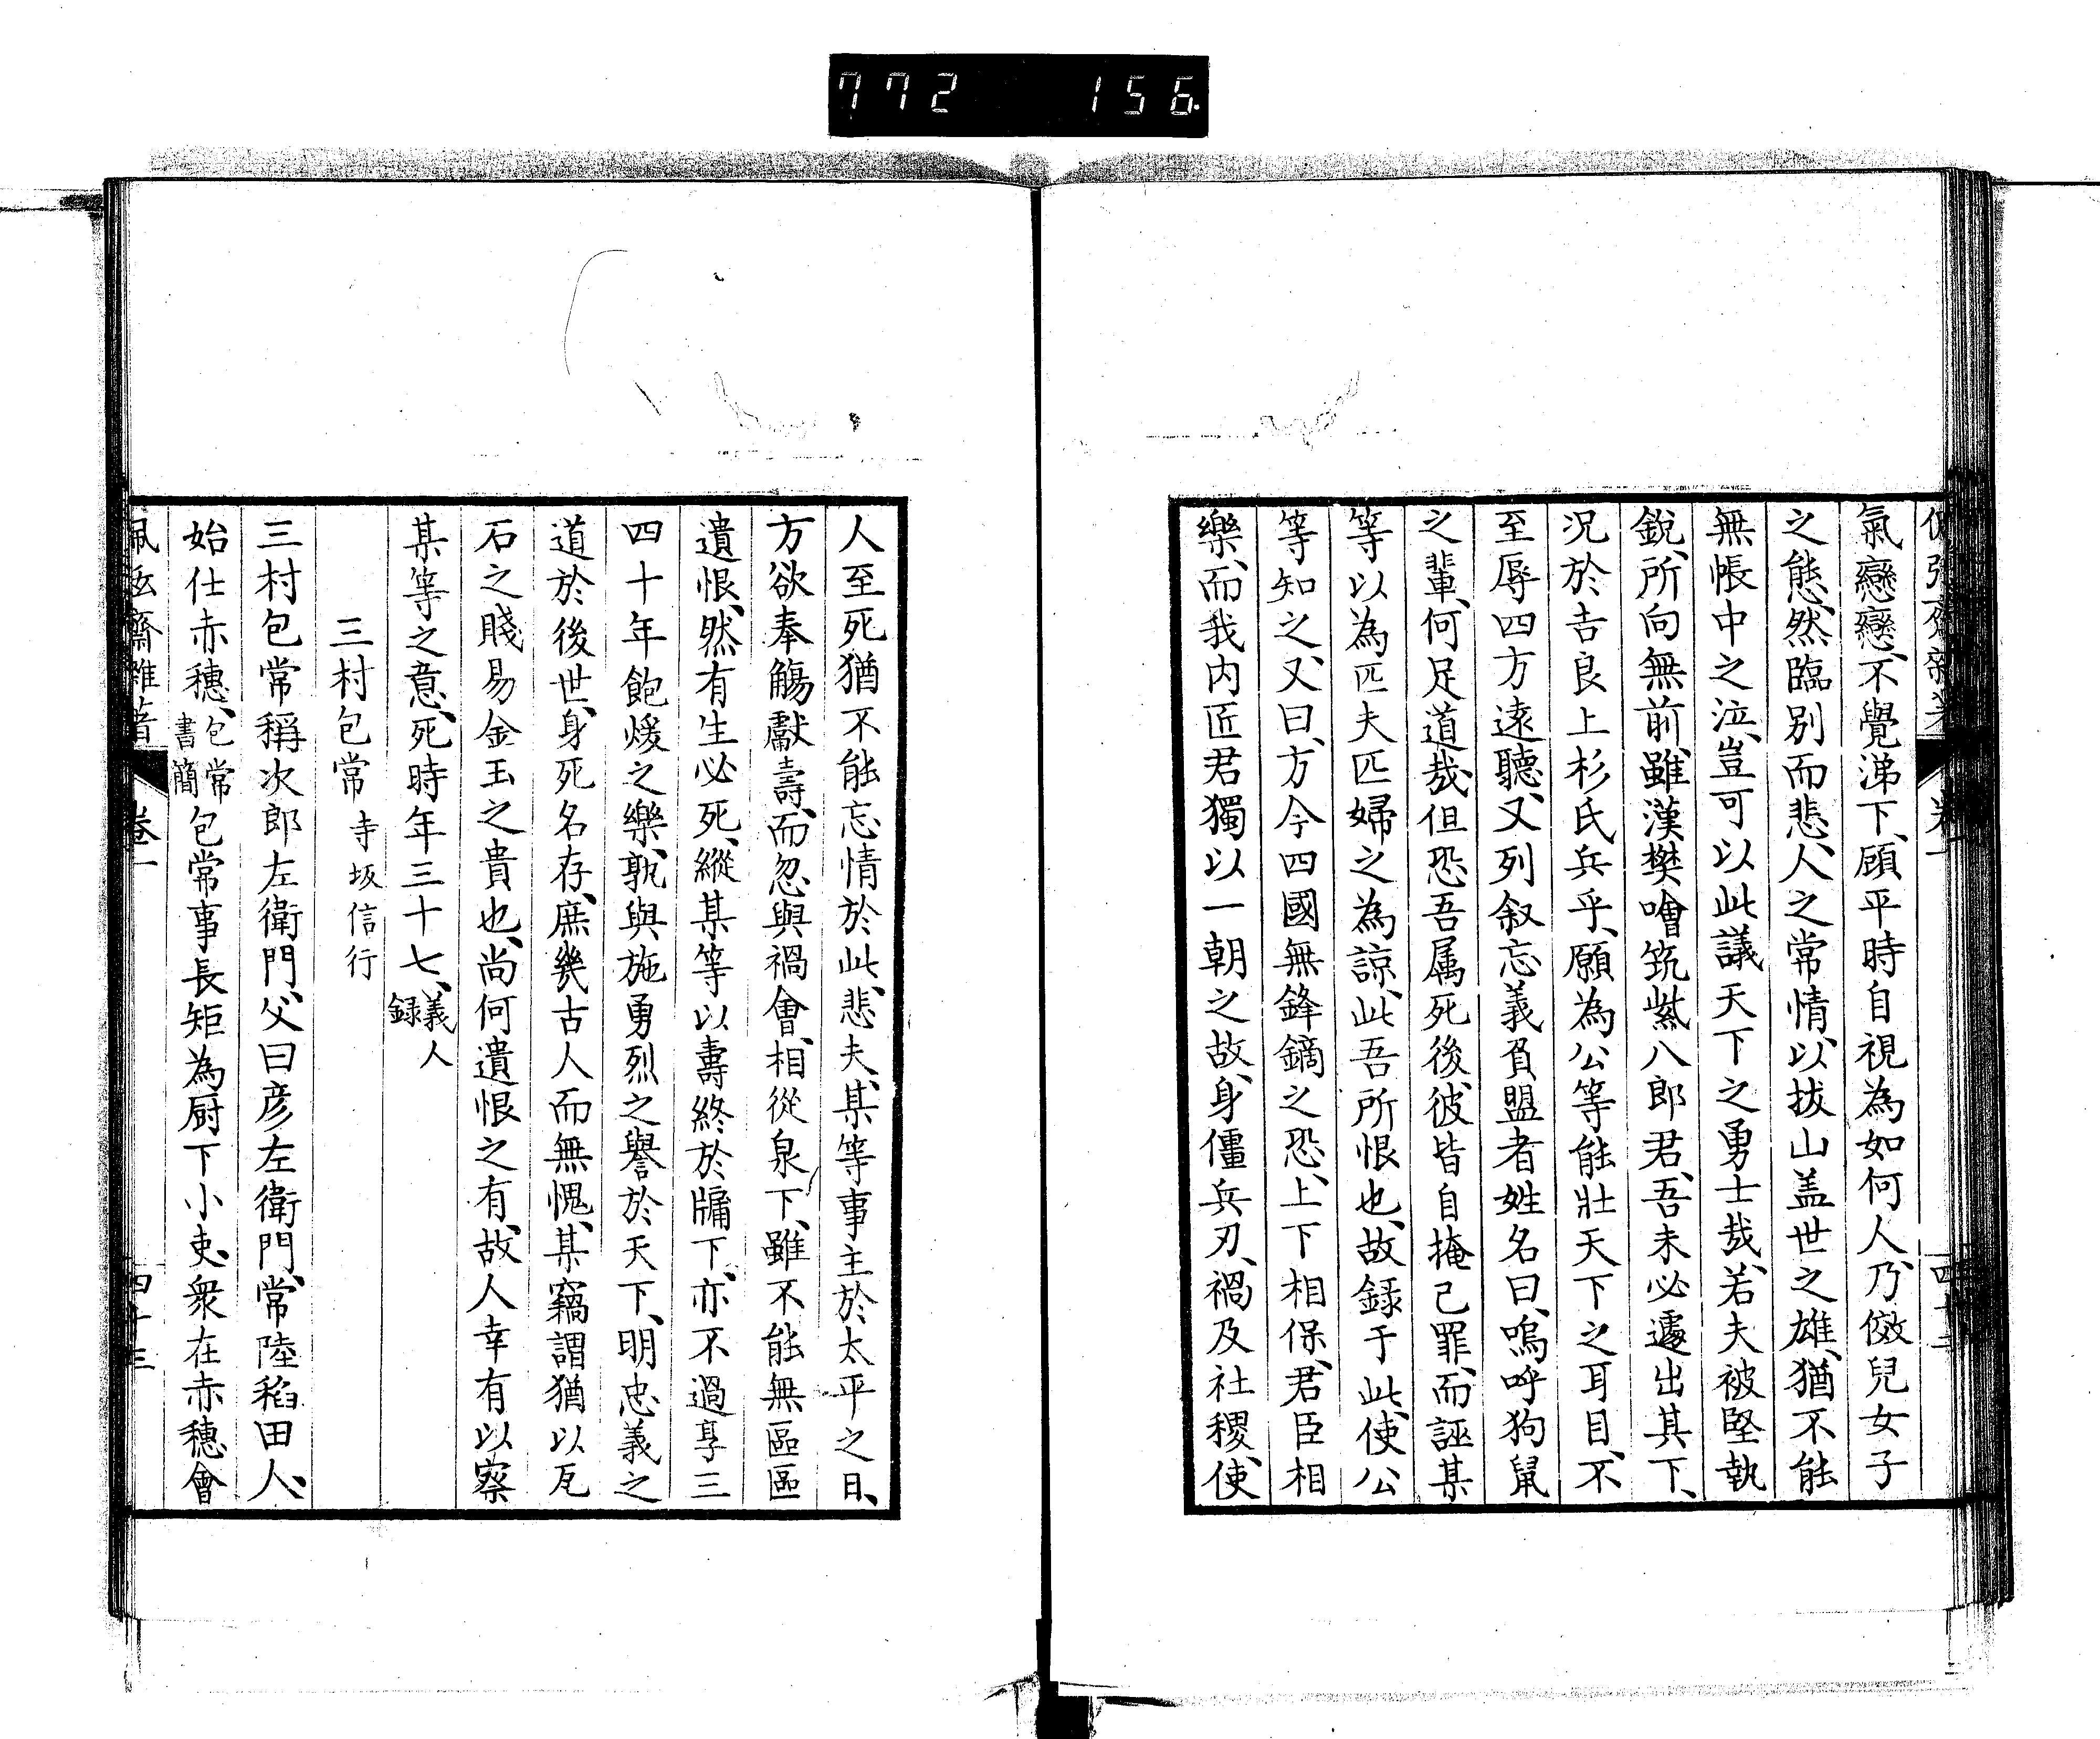 772 156
氣戀戀、不覺涕下、顧平時自視為如何人、乃傚兒女子
之態、然臨別而悲、人之常情、以拔山盖世之雄、猶不能
無帳中之泣、豈可以此議天下之勇士哉、若夫被堅執
銳、所向無前、雖漢樊噲筑紫八郎君、吾未必遽出其下、
況於吉良上杉氏兵乎、願為公等能壯天下之耳目、不
至辱四方遠聽、又列叙忘義負盟者姓名曰、嗚呼狗鼠
之輩、何足道哉、但恐吾属死後、彼皆自掩己罪、而誣某
等以為匹夫匹婦之為諒、此吾所恨也、故録于此、使公
等知之、又曰、方今四國無鋒鏑之恐、上下相保、君臣相
樂、而我内匠君獨以一朝之故、身僵兵刃、禍及社稷、使
人至死猶不能忘情於此、悲夫、某等事主於太平之日、
方欲奉觴獻壽、而忽與禍會、相從泉下、雖不能無區區
遺恨、然有生必死、縱某等以壽終於牖下、亦不過享三
四十年飽煖之樂、孰與施勇烈之譽於天下、明忠義之
道於後世、身死名存、庶幾古人而無愧、某竊謂猶以瓦
石之賤易金玉之貴也、尚何遺恨之有、故人幸有以察
某等之意、死時年三十七、義人録
三村包常 寺坂信行
三村包常稱次郎左衛門、父曰彦左衛門、常陸稻田人、
始仕赤穗、包常書簡包常事長矩為厨下小吏、衆在赤穗會
齋雜著 卷一 四十三